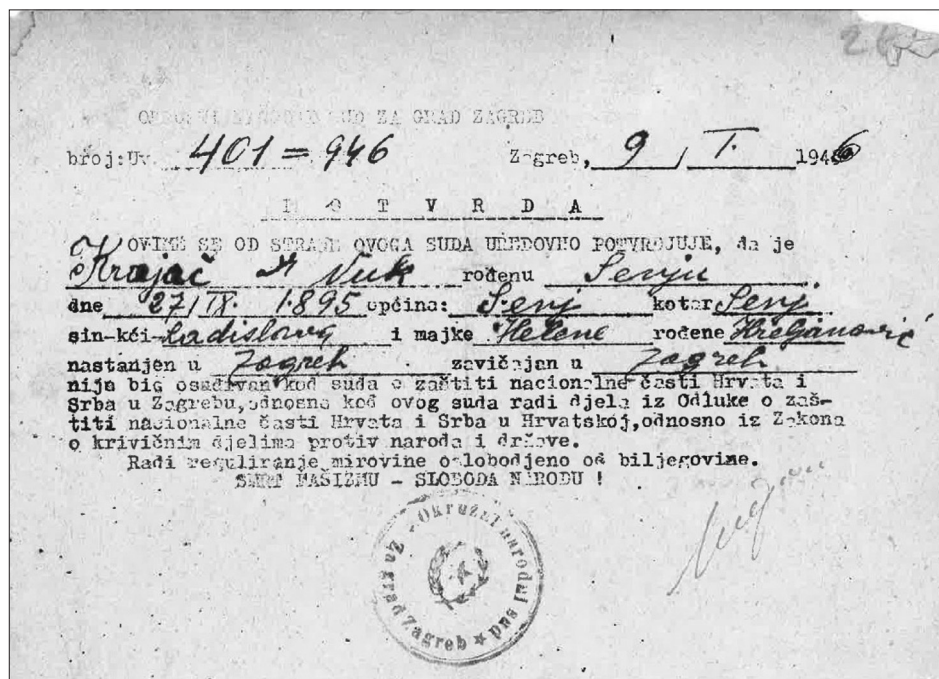 OKRUŽNI NARODNI SUD ZA GRAD ZAGREB
broj:Uv. 401 = 946 Zagreb, 9 / I. 1946
P O T V R D A
OVIME SE OD STRANE OVOGA SUDA UREDOVNO POTVRDJUJE, da je
Krajač Dr Vuk rođenu Senju
dne 27/IX. 1895 općina: Senj kotar Senj
sin-kći Ladislava i majke Helene rođene Hreljanović
nastanjen u Zagreb zavičajan u Zagreb
nije bio osuđivan kod suda o zaštiti nacionalne časti Hrvata i
Srba u Zagrebu, odnosno kod ovog suda radi djela iz Odluke o zaš-
titi nacionalne časti Hrvata i Srba u Hrvatskoj, odnosno iz Zakona
o krivičnim djelima protiv naroda i države.
Radi reguliranje mirovine oslobodjeno od biljegovine.
SMRT FAŠIZMU - SLOBODA NARODU !
Okružni narodni sud
Za grad Zagreb